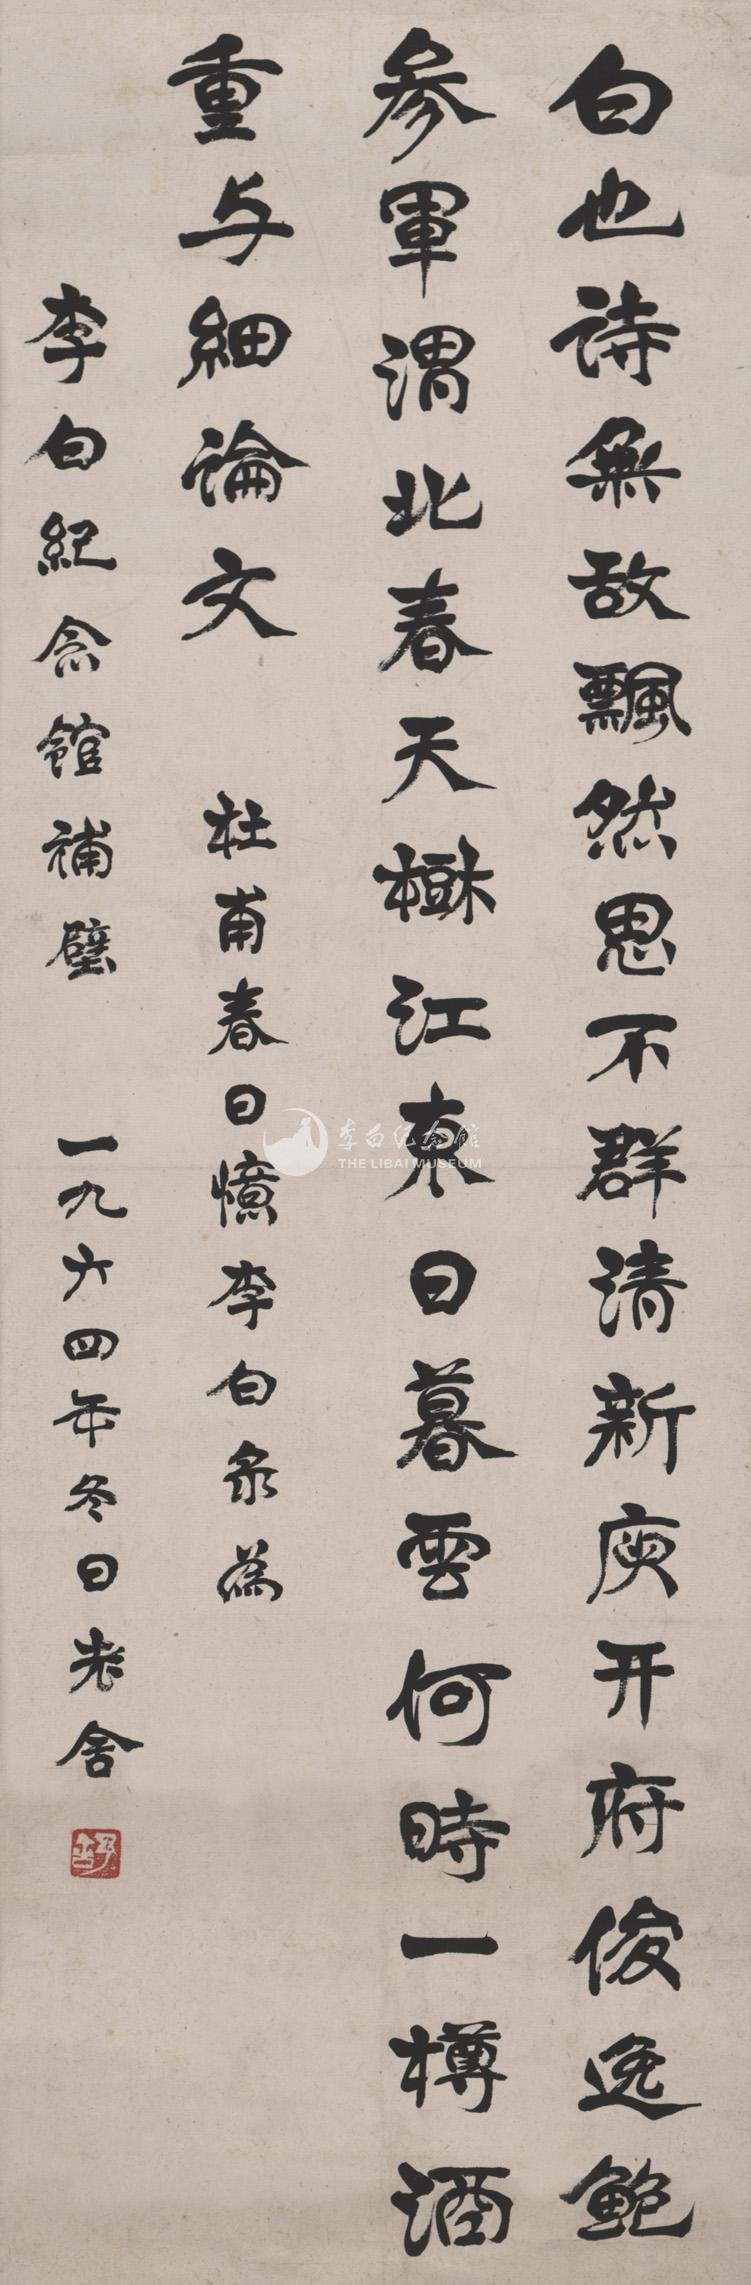 白也詩無敌飄然思不群清新庾开府俊逸鮑
参軍渭北春天樹江東日暮雲何時一樽酒
重与細論文
杜甫春日憶李白錄為
李白紀念館補壁
一九六四年冬日老舍
舒
李白纪念馆
THE LIBAI MUSEUM